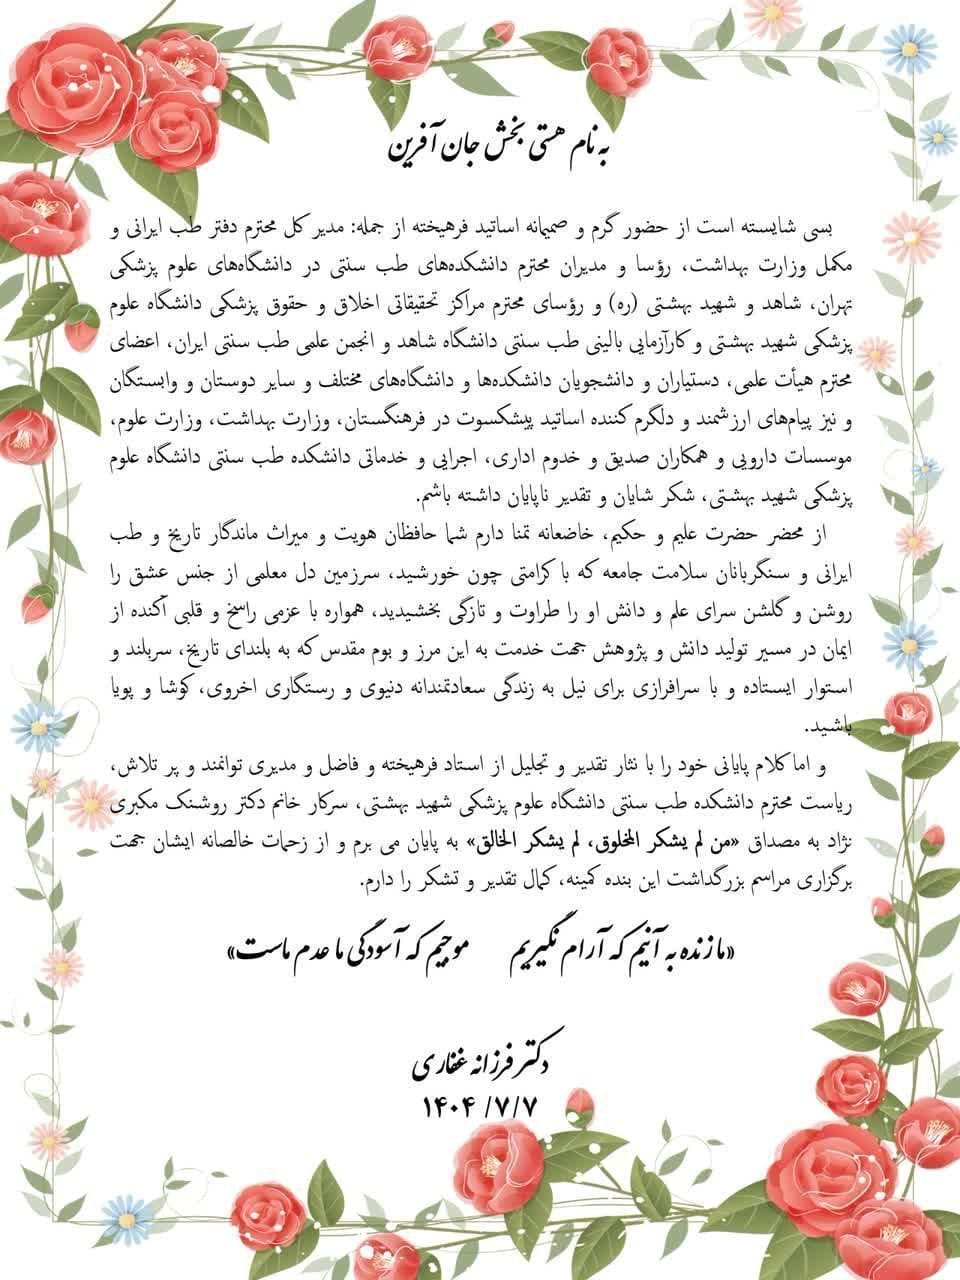 به نام هستی بخش جان آفرین
بسی شایسته است از حضور گرم و صمیمانه اساتید فرهیخته از جمله: مدیر کل محترم دفتر طب ایرانی و
مکمل وزارت بهداشت، رؤسا و مدیران محترم دانشکده‌های طب سنتی در دانشگاه‌های علوم پزشکی
تهران، شاهد و شهید بهشتی (ره) و رؤسای محترم مراکز تحقیقاتی اخلاق و حقوق پزشکی دانشگاه علوم
پزشکی شهید بهشتی و کارآزمایی بالینی طب سنتی دانشگاه شاهد و انجمن علمی طب سنتی ایران، اعضای
محترم هیأت علمی، دستیاران و دانشجویان دانشکده‌ها و دانشگاه‌های مختلف و سایر دوستان و وابستگان
و نیز پیام‌های ارزشمند و دلگرم کننده اساتید پیشکسوت در فرهنگستان، وزارت بهداشت، وزارت علوم،
موسسات دارویی و همکاران صدیق و خدوم اداری، اجرایی و خدماتی دانشکده طب سنتی دانشگاه علوم
پزشکی شهید بهشتی، شکر شایان و تقدیر ناپایان داشته باشم.
از محضر حضرت علیم و حکیم، خاضعانه تمنا دارم شما حافظان هویت و میراث ماندگار تاریخ و طب
ایرانی و سنگربانان سلامت جامعه که با کرامتی چون خورشید، سرزمین دل معلمی از جنس عشق را
روشن و گلشن سرای علم و دانش او را طراوت و تازگی بخشیدید، همواره با عزمی راسخ و قلبی آکنده از
ایمان در مسیر تولید دانش و پژوهش جهت خدمت به این مرز و بوم مقدس که به بلندای تاریخ، سربلند و
استوار ایستاده و با سرافرازی برای نیل به زندگی سعادتمندانه دنیوی و رستگاری اخروی، کوشا و پویا
باشید.
و اما کلام پایانی خود را با نثار تقدیر و تجلیل از استاد فرهیخته و فاضل و مدیری توانمند و پر تلاش،
ریاست محترم دانشکده طب سنتی دانشگاه علوم پزشکی شهید بهشتی، سرکار خانم دکتر روشنک مکبری
نژاد به مصداق «من لم یشکر المخلوق، لم یشکر الخالق» به پایان می برم و از زحمات خالصانه ایشان جهت
برگزاری مراسم بزرگداشت این بنده کمینه، کمال تقدیر و تشکر را دارم.
«ما زنده به آنیم که آرام نگیریم موجیم که آسودگی ما عدم ماست»
دکتر فرزانه غفاری
۱۴۰۴ /۷/۷